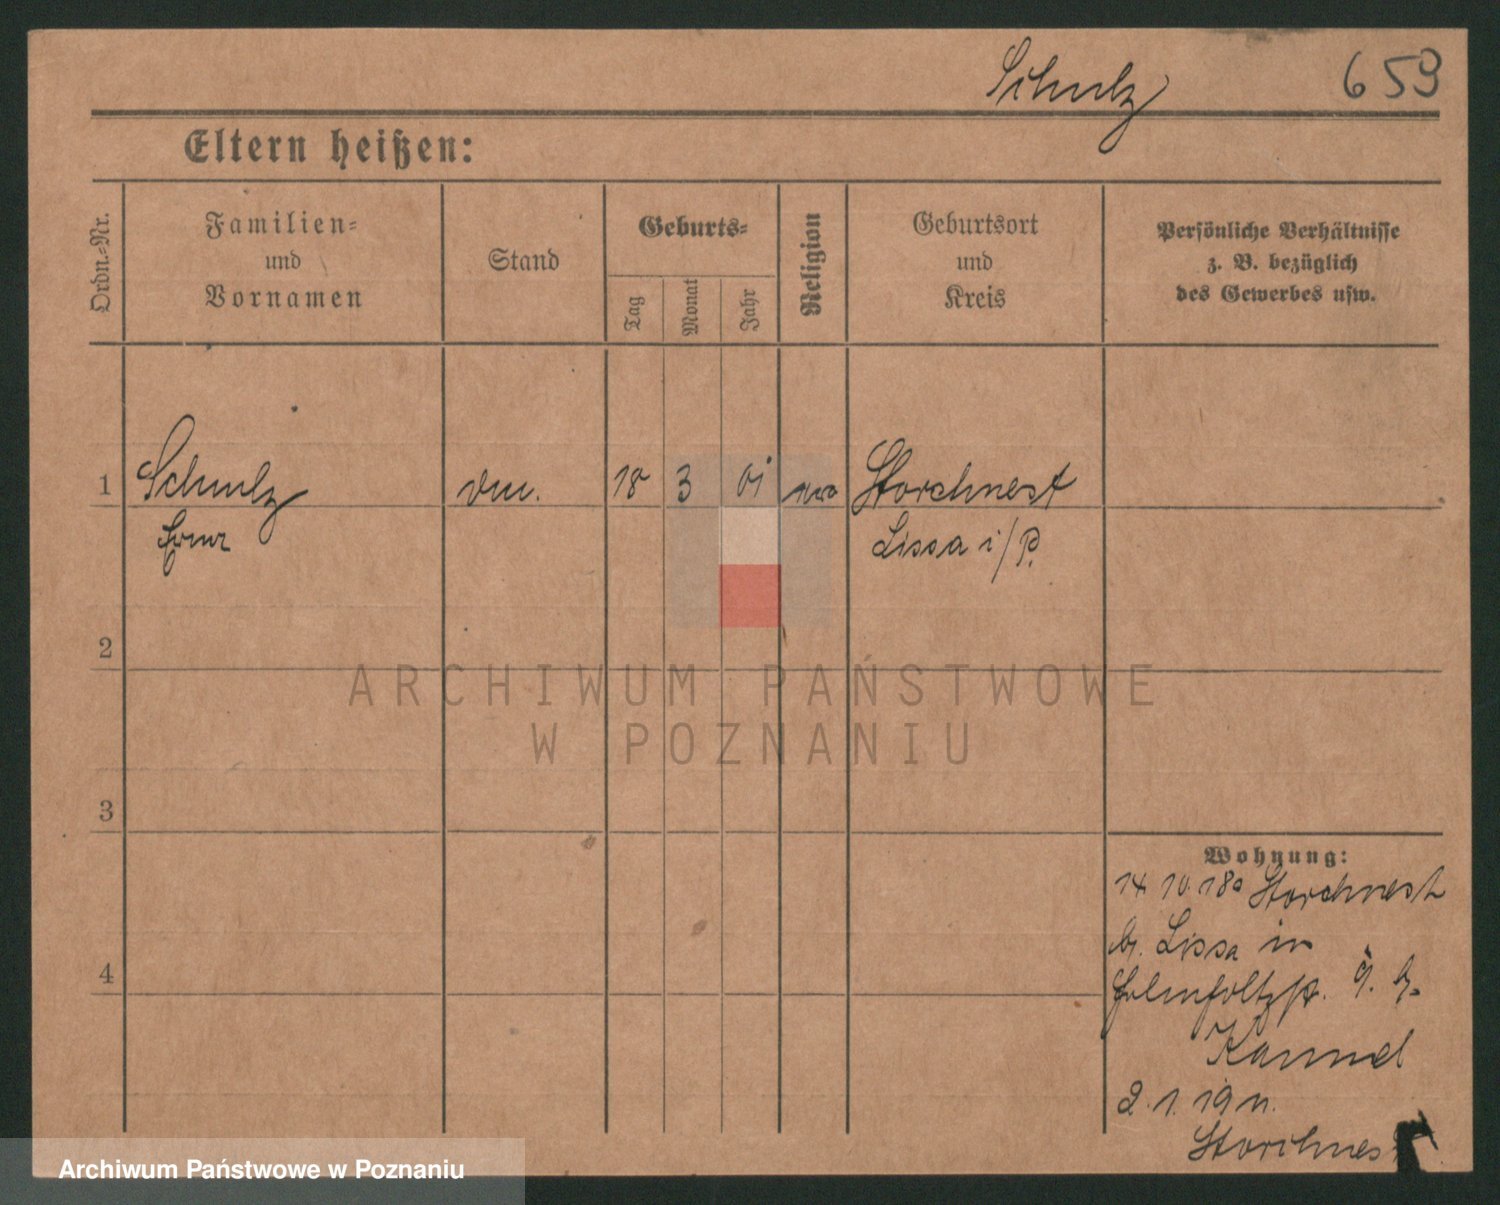 Schulz 659
Eltern heißen:
Ordn.-Nr.
Familien-
und
Vornamen
Stand
Geburts-
Tag
Monat
Jahr
Religion
Geburtsort
und
Kreis
Persönliche Verhältnisse
z. B. bezüglich
des Gewerbes usw.
1 Schulz 18 3 01 Storchnest
Lissa i/P.
2
ARCHIWUM PAŃSTWOWE
W POZNANIU
3
Wohnung:
14 10 18 Storchnest
b. Lissa in
4
b.
2. 1. 19 n.
Storchnest
Archiwum Państwowe w Poznaniu